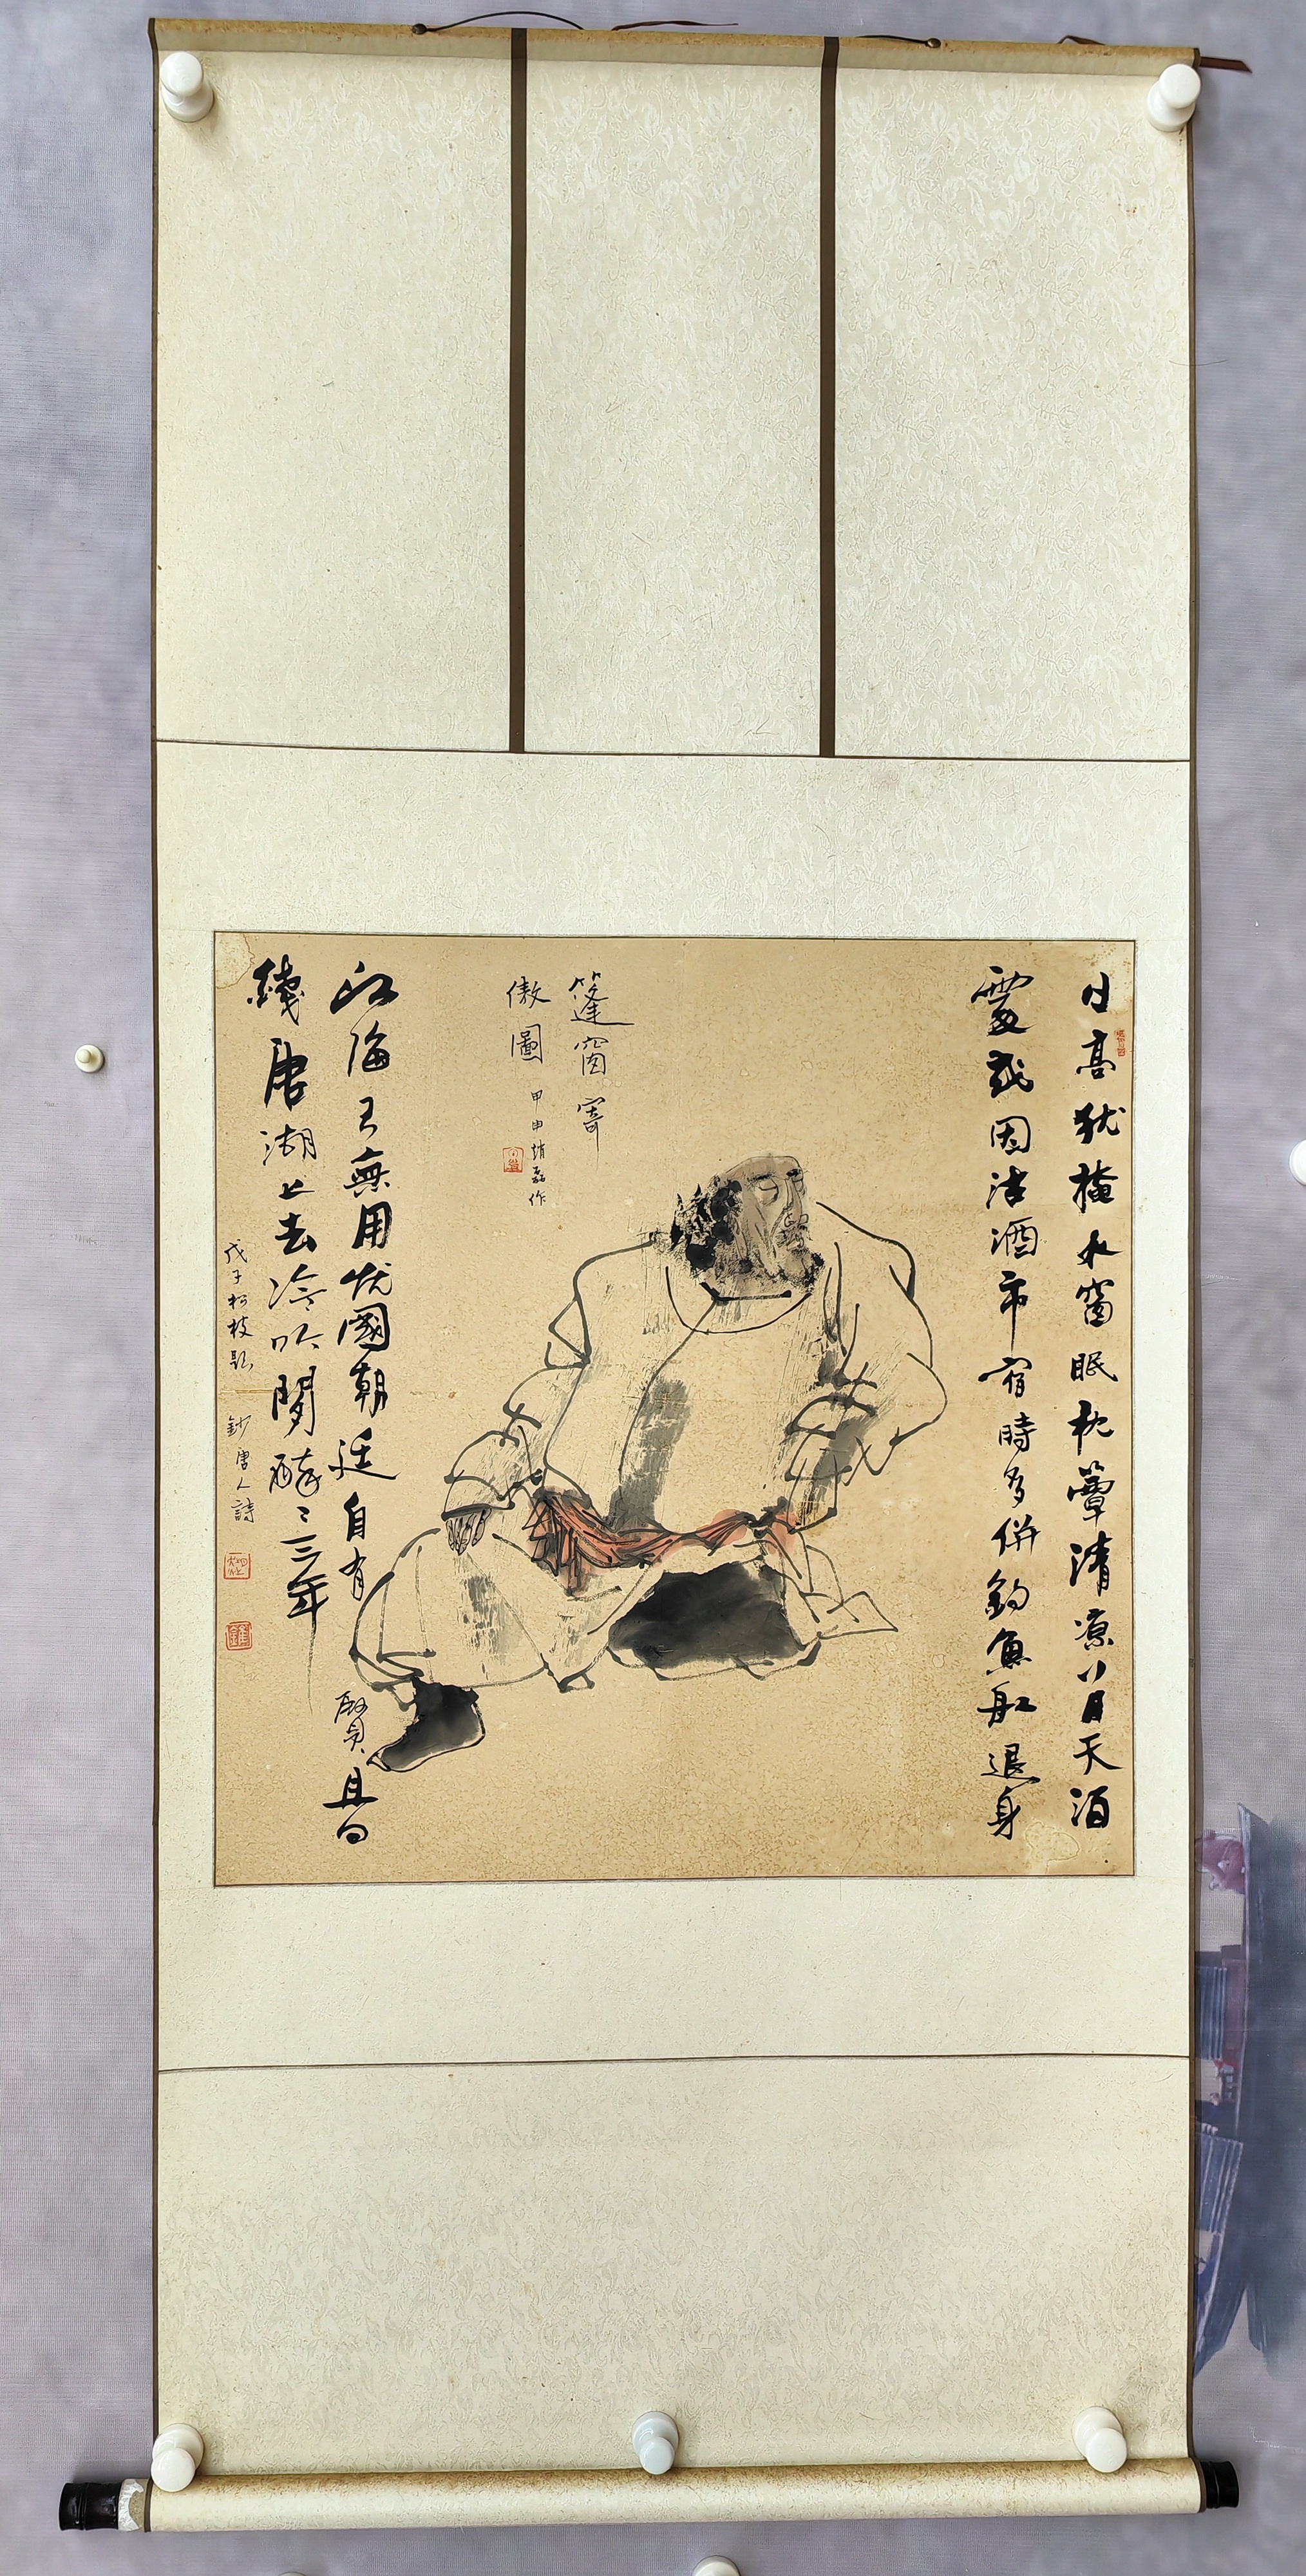 日高猶掩水窗眠枕簟清凉八月天泊
處或因沽酒市宿時多併釣魚船退身
篷窗寄
傲圖
甲申趙磊作
江海無用忧國朝廷自有賢且向
錢唐湖上去冷吟閑醉二三年
戊子松枝題 鈔唐人詩